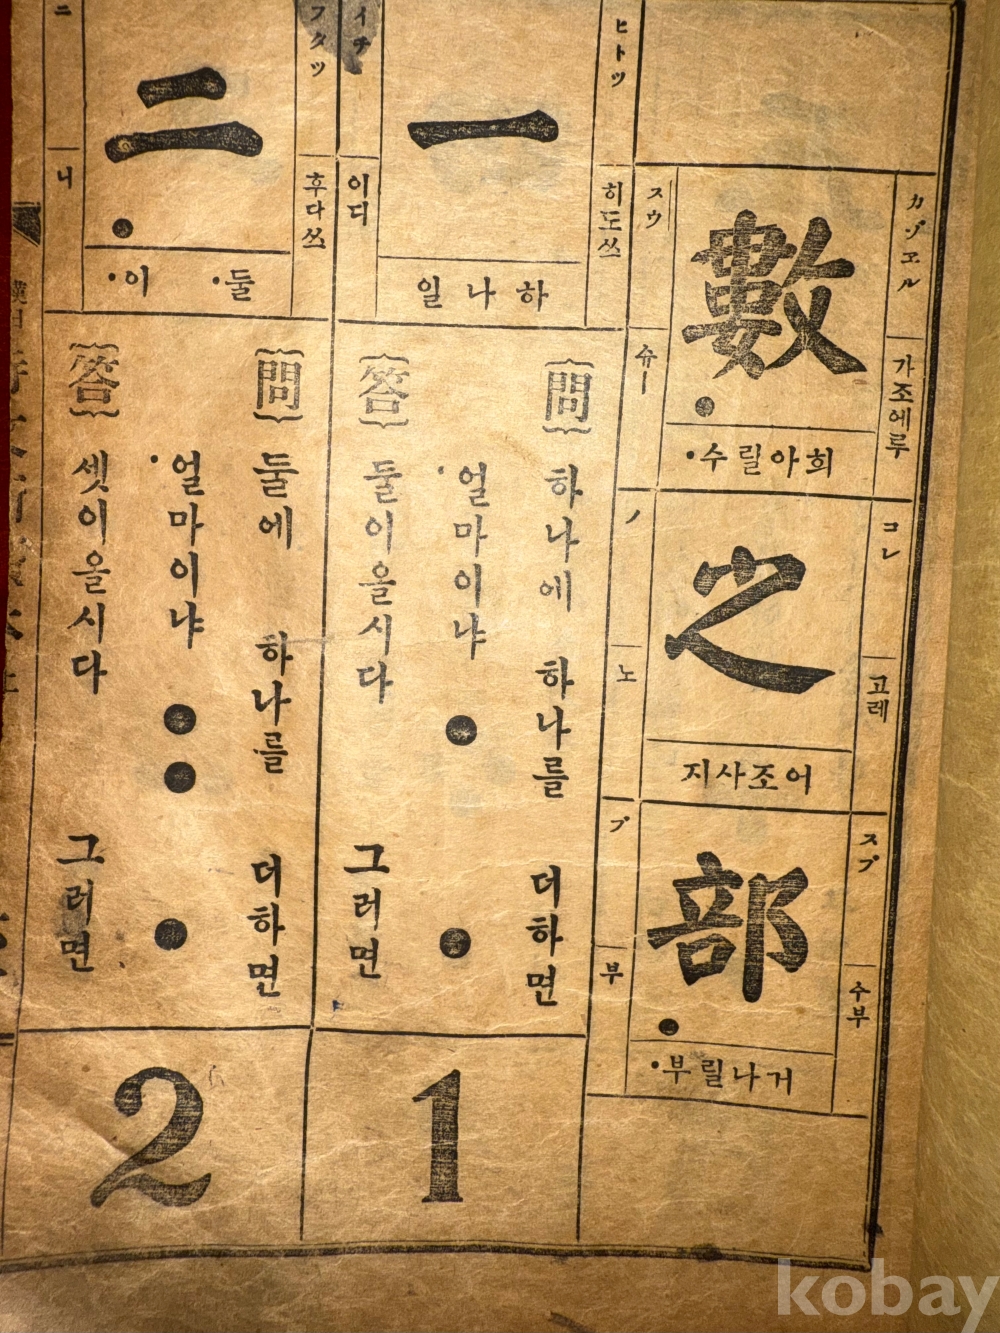 カゾヱル
가조에루
數
희아릴수
スウ
슈ー
コレ
고레
之
어조사지
ノ
노
スブ
수부
部
거나릴부
ブ
부
ヒトツ
히도쓰
一
하나일
イチ
이디
【問】 하나에 하나를 더하면
얼마이냐 ● ●
【答】 둘이올시다 그러면
1
フタツ
후다쓰
二
둘 이
ニ
니
【問】 둘에 하나를 더하면
얼마이냐 ●● ●
【答】 셋이올시다 그러면
2
kobay